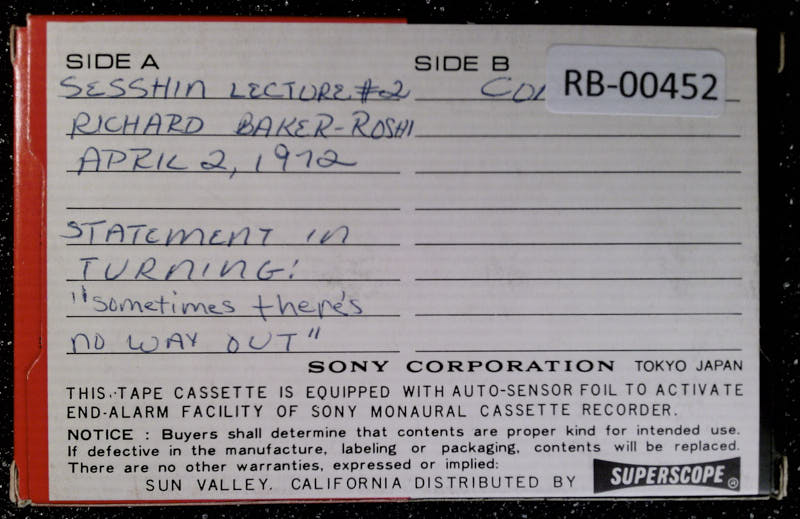 SIDE A
SESSHIN LECTURE #2
RICHARD BAKER-ROSHI
APRIL 2, 1972
STATEMENT IN
TURNING:
"sometimes there's
no WAY OUT"
SIDE B
RB-00452
SONY CORPORATION TOKYO JAPAN
THIS TAPE CASSETTE IS EQUIPPED WITH AUTO-SENSOR FOIL TO ACTIVATE
END-ALARM FACILITY OF SONY MONAURAL CASSETTE RECORDER.
NOTICE : Buyers shall determine that contents are proper kind for intended use.
If defective in the manufacture, labeling or packaging, contents will be replaced.
There are no other warranties, expressed or implied:
SUN VALLEY. CALIFORNIA DISTRIBUTED BY SUPERSCOPE®